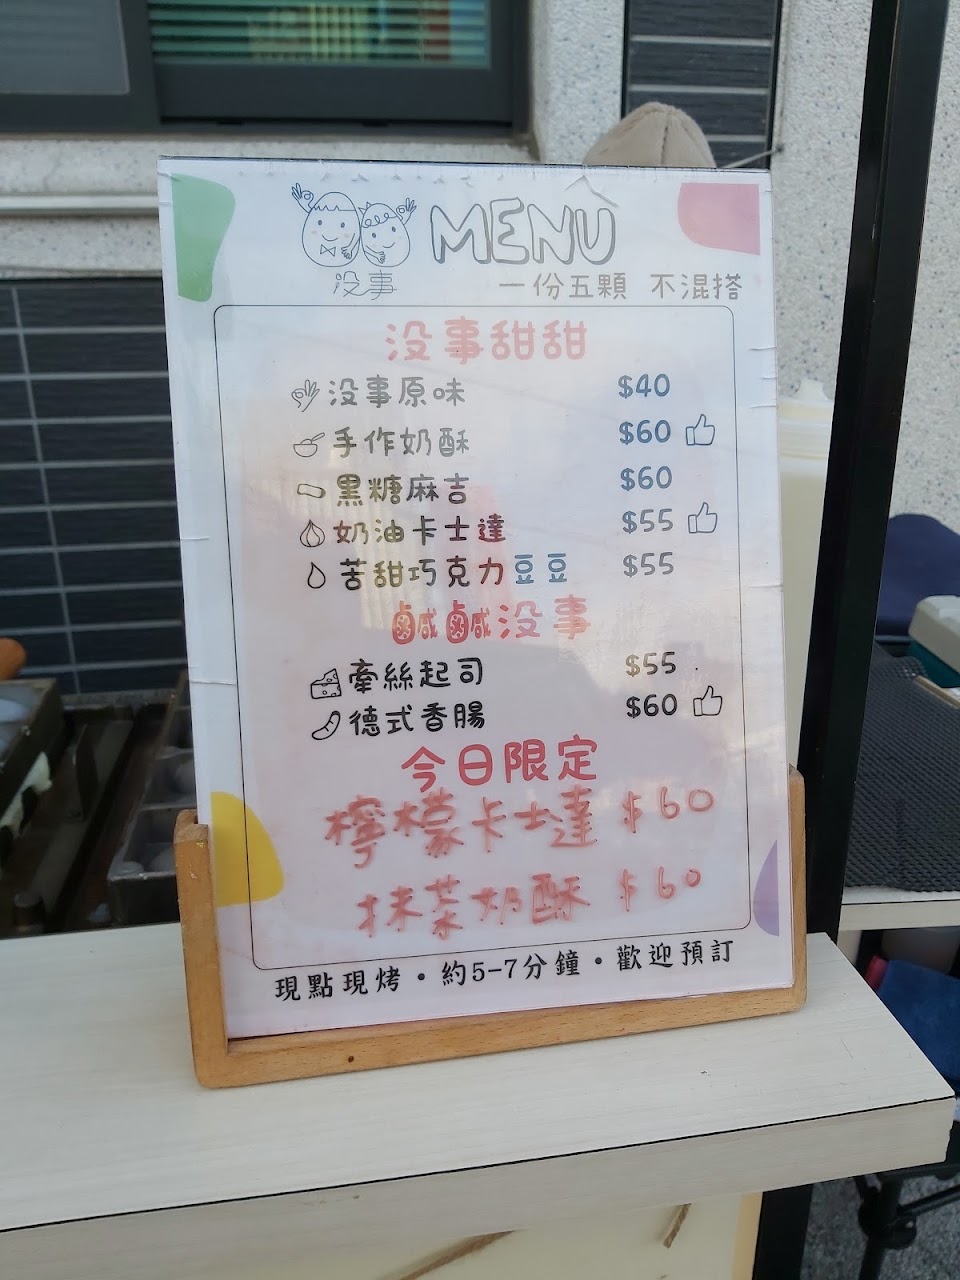 MENU
没事
一份五顆 不混搭
没事甜甜
没事原味 $40
手作奶酥 $60
黑糖麻吉 $60
奶油卡士達 $55
苦甜巧克力豆豆 $55
鹹鹹没事
牽絲起司 $55
德式香腸 $60
今日限定
檸檬卡士達 $60
抹茶奶酥 $60
現點現烤・約5-7分鐘・歡迎預訂